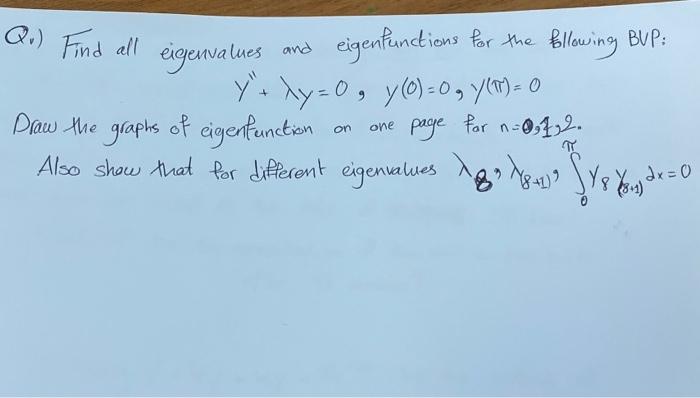 Q.) Find all eigenvalues and eigenfunctions for the following BVP:
y'' + λy = 0, y(0) = 0, y(π) = 0
Draw the graphs of eigenfunction on one page for n=0,1,2.
Also show that for different eigenvalues λ₈, λ₍₈₊₁₎, ∫₀^π y₈ y₍₈₊₁₎ dx = 0